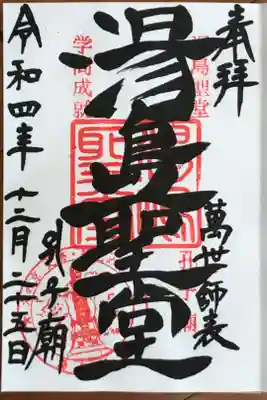 奉拝
湯島聖堂
萬世師表
湯島聖堂
孔子廟
学問成就
孔子廟
令和四年十二月二十五日